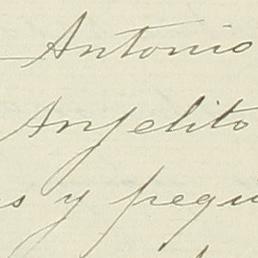 Antonio
Anjelito
s y pequ